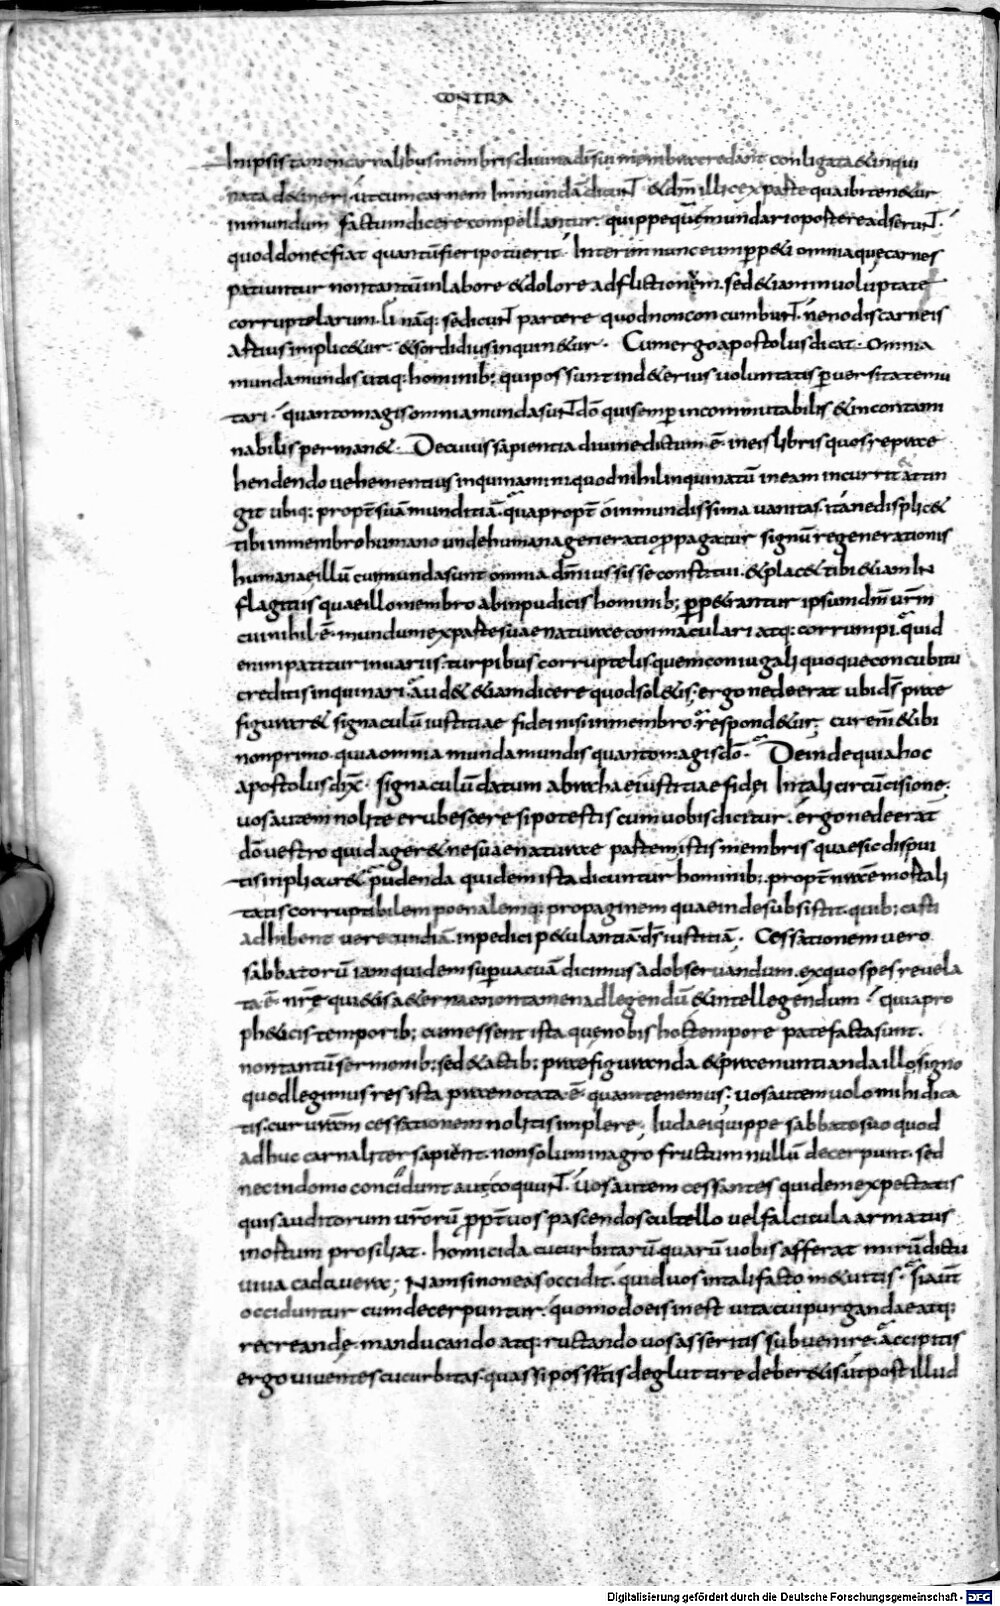 CONTRA
In ipsis tamen carnalibus membris divina dī sui membra credant conligata & inqui
nata d&ineri. ut cum carnem Inmundā dicunt & dm̄ illic ex parte qua ibi ten&ur
inmundum factum dicere compellantur. quippe quē mundari opostere adserunt.
quod donec fiat quantū fieri potuerit. Interim nunc eum ꝑp&i omnia quę carnes
patiuntur non tantū in labore & dolore adflictionem. sed &iam in voluptate
corruptelarum. Ii nāq; se dicunt parcere quod non concumbunt. ne nodis carneis
artius implic&ur. & sordidius inquin&ur. Cum ergo apostolus dicat. Omnia
munda mundis utiq; hominib; qui possunt in d&erius voluntatis ꝑversitate mu
tari. quanto magis omnia munda sunt dō qui semper incommutabilis & incontami
nabilis perman&. De cuius sapientia divine dictum ē. in eis libris quos repræ
hendendo vehementius inquinamini. quod nihil inquinatū in eam incurrit & attin
git ubiq; propt̄ suā munditiā. quapropt̄ o inmundissima vanitas. itane displic&
tibi in membro humano unde humana generatio ꝓpagatur signū regenerationis
humanae illū cui munda sunt omnia dm̄ iussisse constitui. & plac& tibi &iam In
flagitiis quae illo membro ab inpudicis hominib; ꝑp&rantur ipsum dm̄ ur̄m
cui nihil ē. mundum ex parte suae naturae conmaculari atq; corrumpi. quid
enim patitur in variis turpibus corruptelis. quem coniugali quoque concubitu
creditis inquinari. aud& &iam dicere quod sol&is. ergone deerat ubi ds̄ præ
figurar& signaculū iustitiae fidei nisi in membro. respond&ur; cur em̄ & ibi
non primo. quia omnia munda mundis quanto magis dō. Deinde quia hoc
apostolus dix̄. signaculū datum abrachae iustitiae fidei In tali circūcisione.
vos autem nolite erubescere si potestis cum vobis dicitur. ergone deerat
dō vestro quid ager& ne suae naturae partem istis membris quae sic dispui
tis inplicar&. pudenda quidem ista dicuntur hominib;. propt̄ nræ mortali
tatis corruptibilem poenalemq; propaginem quae inde subsistit. quib; casti
adhibent verecundiā. inpedici p&ulantiā. ds̄ iustitiā. Cessationem vero
sabbatorū iam quidem supervacuā dicimus ad observandum. ex quo spes revela
ta ē nr̄e qui&is aeternae. non tamen ad legendū & intellegendum. quia pro
ph&icis temporib; cum essent ista quę nobis hoc tempore patefacta sunt.
non tantū sermonib; sed & actib; præfiguranda & prænuntianda illo signo
quod legimus res ista prænotata ē. quam tenemus; vos autem volo mihi dica
tis. cur uram̄ cessationem nolitis implere. Iudaei quippe sabbato suo quod
adhuc carnaliter sapiunt. non solum in agro fructum nullū decerpunt. sed
nec in domo concidunt aut coquunt. Vos autem cessantes quidem expectatis
quis auditorum ur̄orū propt̄ vos pascendos cultello vel falcicula armatus
in ortum prosiliat. homicida cucurbitarū quarū vobis afferat mirū dictu
viva cadavera; Nam si non eas occidit. quid vos in tali facto m&uitis. si aūt
occiduntur cum decerpuntur. quomodo eis inest vita cui purgandae atq;
recreandę manducando atq; ructando vos asseritis subvenire. accipitis
ergo viventes cucurbitas. quas si poss&is deglutire deber&is. ut post illud
Digitalisierung gefördert durch die Deutsche Forschungsgemeinschaft - DFG